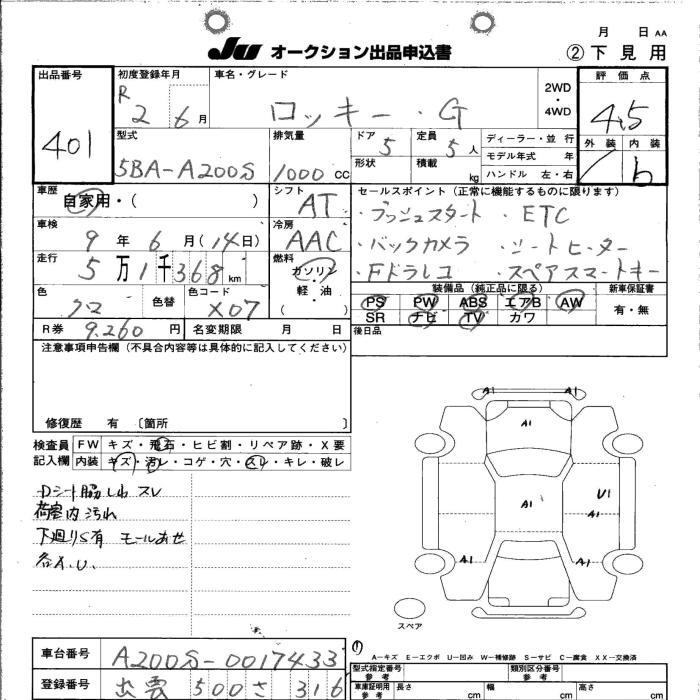 月 日 AA
JU オークション出品申込書 ②下見用
出品番号 401
初度登録年月 R 2 6月
車名・グレード ロッキー・G
2WD・4WD
評価点 4.5
外装 内装 b
型式 5BA-A200S
排気量 1000 CC
ドア 5 定員 5人
形状 積載 kg
ディーラー・並行
モデル年式 年
ハンドル 左・右
車歴 自家用・( )
シフト AT
セールスポイント(正常に機能するものに限ります)
・プッシュスタート ・ETC
・バックカメラ ・シートヒーター
・Fドラレコ ・スペアスマートキー
車検 9年 6月(14日)
冷房 AAC
走行 5万1千368km
燃料 ガソリン 軽・油 ( )
色 クロ 色替 色コード X07
装備品(純正品に限る) 新車保証書
PS PW ABS エアB AW 有・無
SR ナビ TV カワ
R券 9.260円 名変期限 月 日
後日品
注意事項申告欄(不具合内容等は具体的に記入してください)
修復歴 有 〔箇所 〕
検査員記入欄
FW キズ・飛石・ヒビ割・リペア跡・X要
内装 キズ・汚レ・コゲ・穴・スレ・キレ・破レ
Dシート脇しわ スレ
荷室内汚れ
下廻りS有 モールあせ
各A.U.
A1 A1
A1
A1 U1
A1
A1 A1
スペア
①
A－キズ E－エクボ U－凹み W－補修跡 S－サビ C－腐食 XX－交換済
車台番号 A200S-0017433
登録番号 出雲 500 さ 316
型式指定番号 参考 類別区分番号 参考
車庫証明用 参考 長さ cm 幅 cm 高さ cm